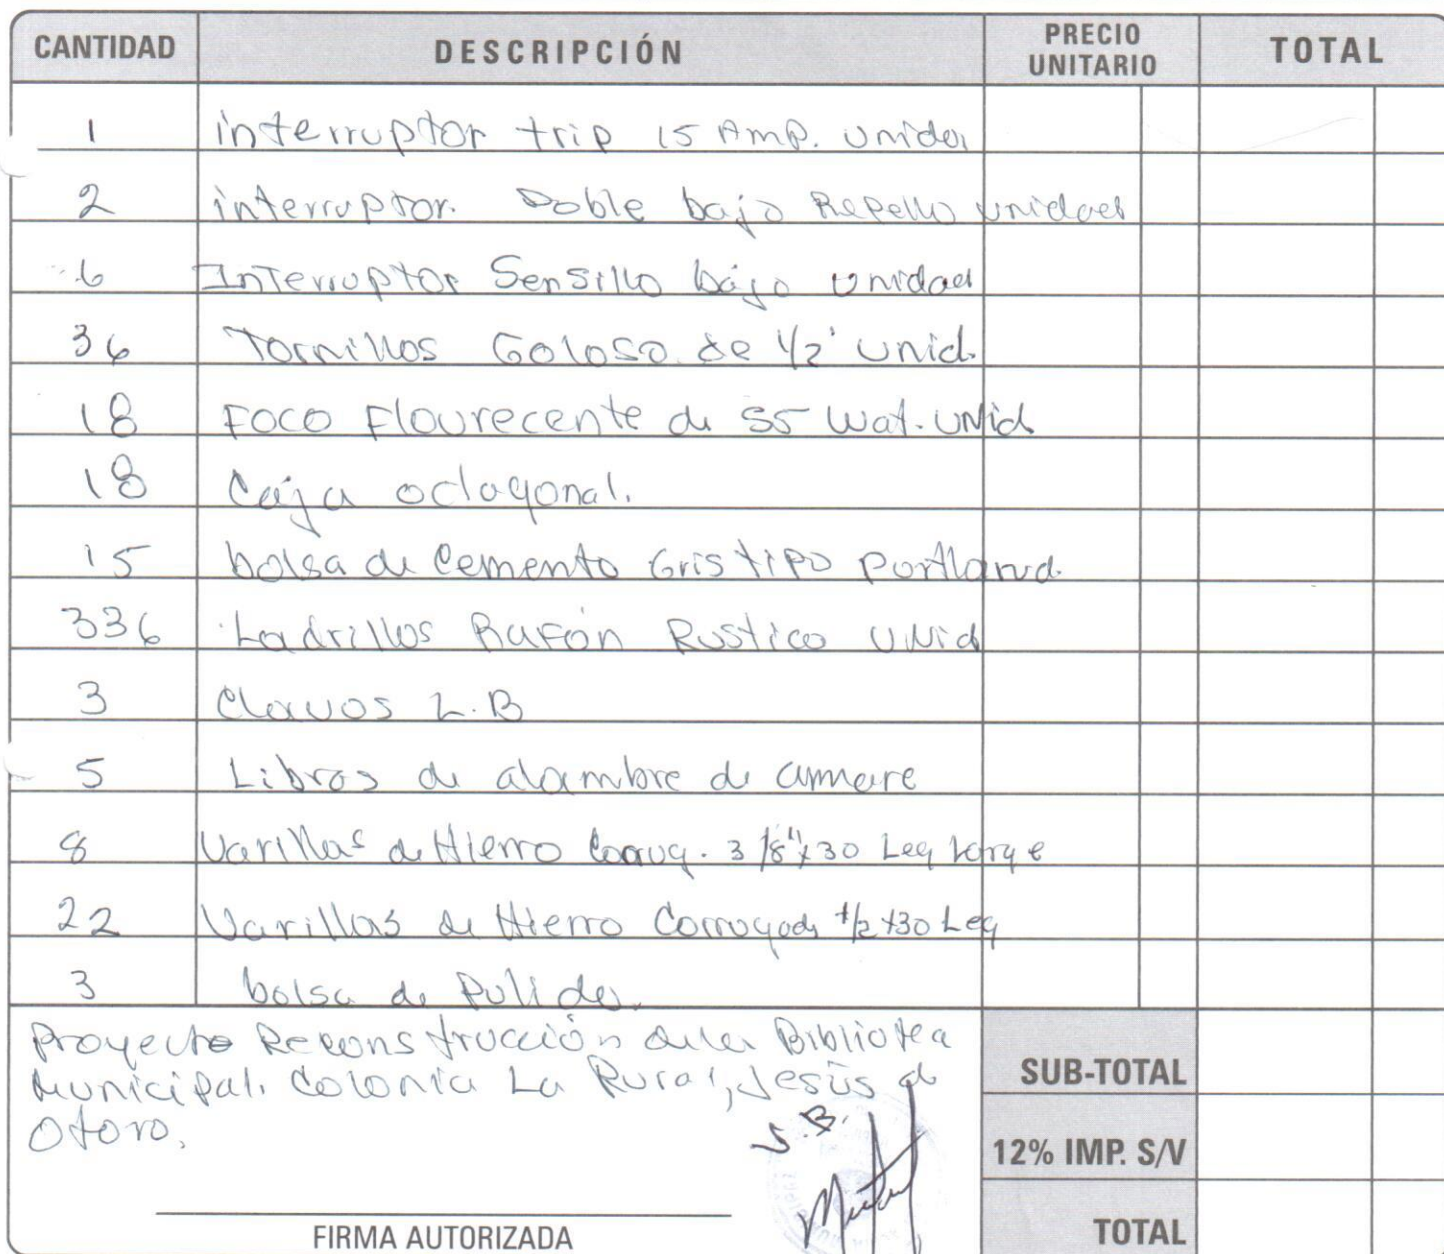 CANTIDAD DESCRIPCIÓN PRECIO UNITARIO TOTAL
1 interruptor trip 15 Amp. unidad
2 interruptor. Doble bajo Repello unidad
6 Interruptor Sensillo bajo unidad
36 Tornillos Goloso de 1/2" unid.
18 Foco Flourecente de 55 wat. unid
18 Caja octagonal.
15 bolsa de Cemento Gris tipo portland.
336 Ladrillos Rafón Rustico unid
3 Clavos L.B
5 Libras de alambre de amare
8 Varillas de Hierro Corrug. 3/8"x30 Leg large
22 Varillas de Hierro Corrugado 1/2 x30 Leg
3 bolsa de Pulido.
Proyecto Reconstrucción de la Bibliotea
Municipal. Colonia La Rural, Jesús de
Otoro.
SUB-TOTAL
12% IMP. S/V
TOTAL
FIRMA AUTORIZADA